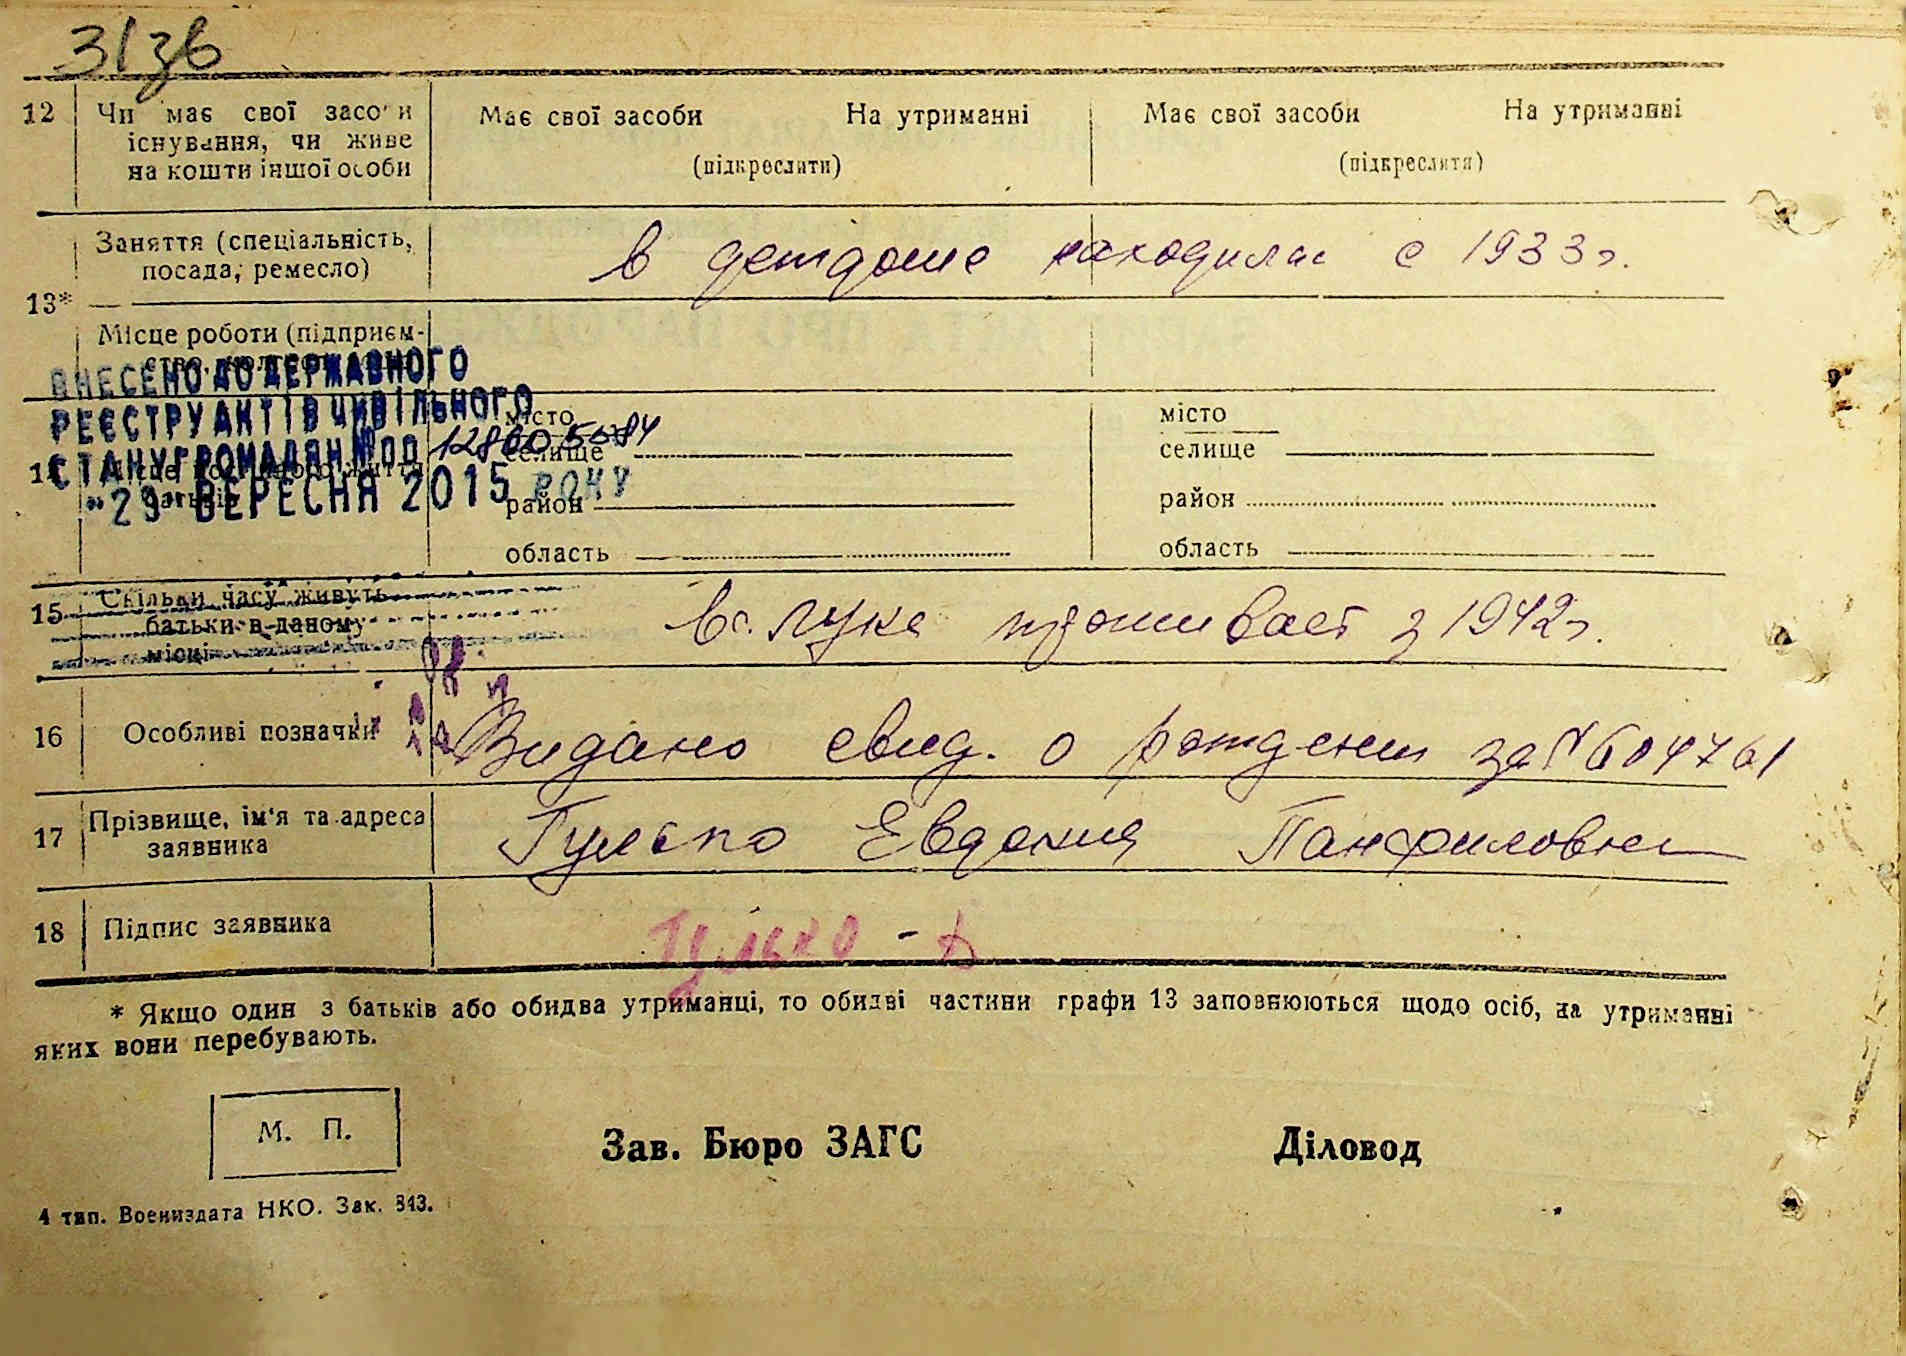 31зв
12
Чи має свої засоби
існування, чи живе
на кошти іншої особи
Має свої засоби На утриманні
(підкреслити)
Має свої засоби На утриманні
(підкреслити)
13*
Заняття (спеціальність,
посада, ремесло)
в детдоме находилас с 1933г.
Місце роботи (підприєм-
ВНЕСЕНО ДО ДЕРЖАВНОГО
РЕЄСТРУ АКТІВ ЦИВІЛЬНОГО
СТАНУ ГРОМАДЯН №
"29" ВЕРЕСНЯ 2015 РОКУ
місто
селище
район
область
місто
селище
район
область
15
Скільки часу живуть
батьки в даному
місці
в с. Луке проживает з 1942г.
16
Особливі позначки
Видано свид. о рождении за № 604761
17
Прізвище, ім'я та адреса
заявника
Гулько Евдокия Панфиловна
18
Підпис заявника
Гулько -
* Якщо один з батьків або обидва утриманці, то обидві частини графи 13 заповнюються щодо осіб, на утриманні
яких вони перебувають.
М. П.
Зав. Бюро ЗАГС
Діловод
4 тип. Воениздата НКО. Зак. 843.